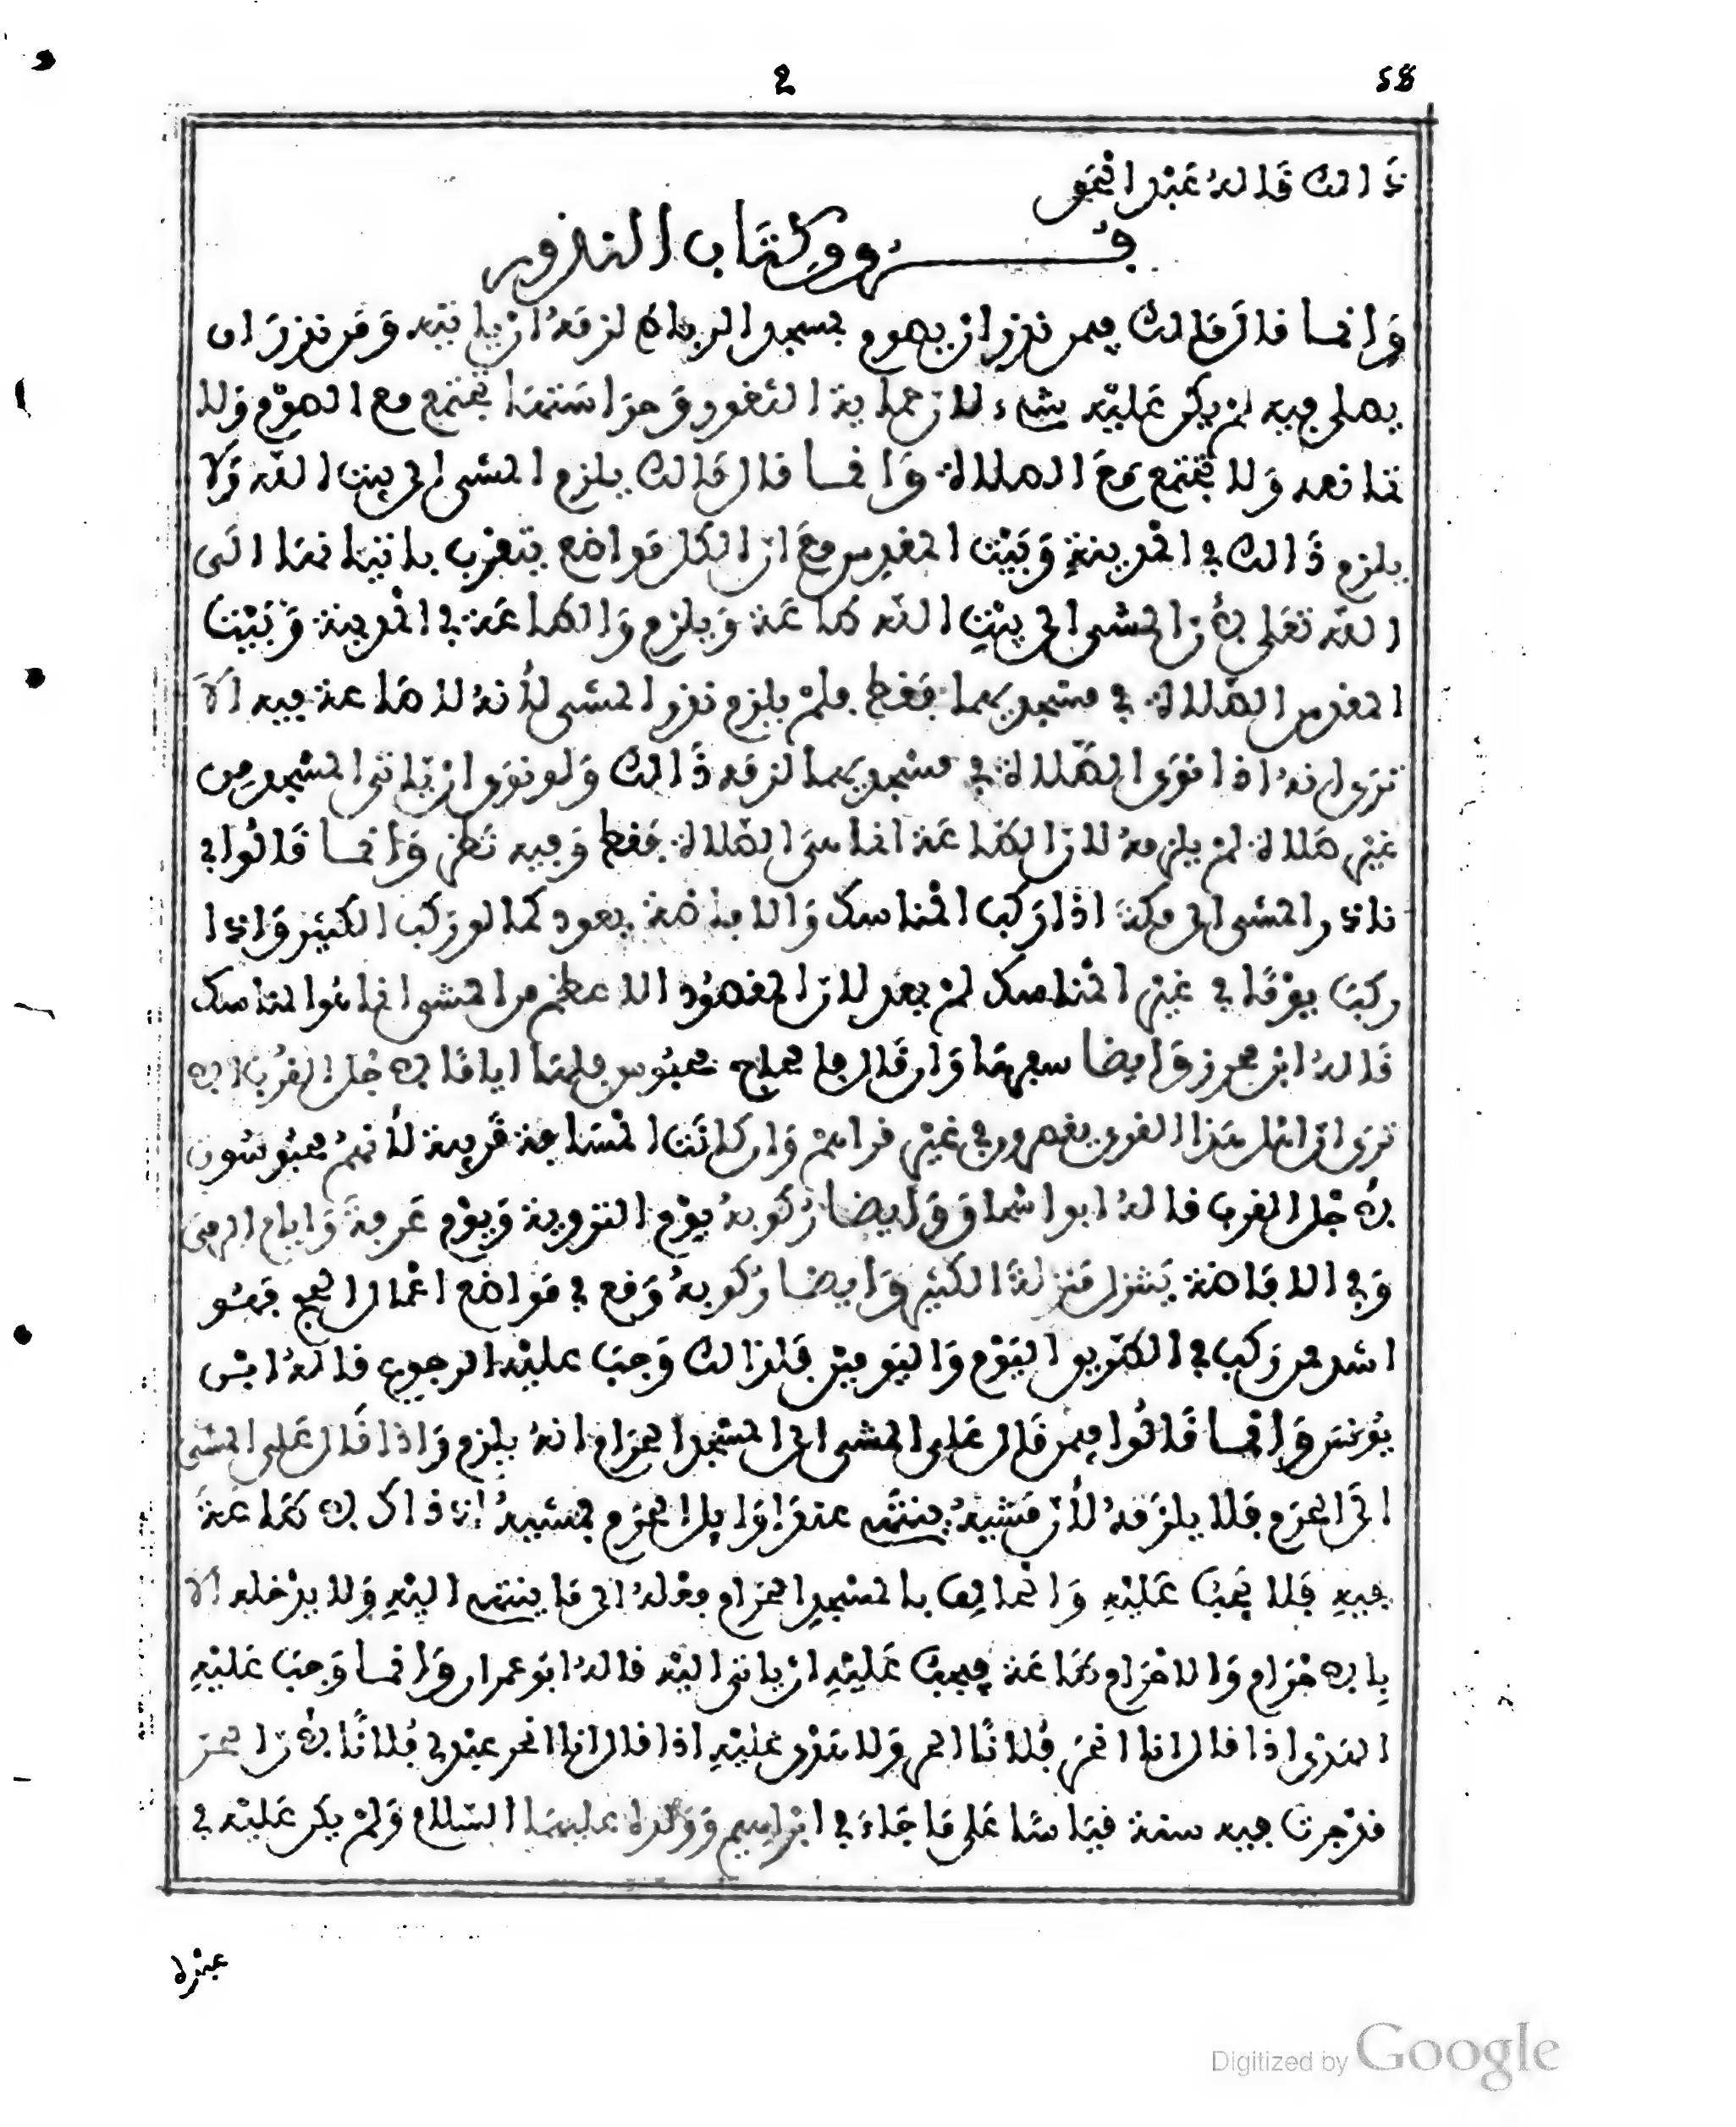 58 2
ذالك قاله عبد الحق
فروق كتاب النذور
وانما قال مالك فيمن نذر ان يصوم بمسجد الرباط لزمه ان ياتيه ومن نذر ان
يصلي فيه لم يكن عليه شيء لان حماية الثغور وحراستها تجتمع مع الصوم ولا
تمانعه ولا تجتمع مع الصلاة وانما قال مالك يلزم المشي الى بيت الله ولا
يلزم ذالك في المدينة وبيت المقدس مع ان الكل مواضع يتقرب باتيانها الى
الله تعلى لأن المشي الى بيت الله طاعة ويلزم والطاعة في المدينة وبيت
المقدس الصلاة في مسجديهما فقط فلم يلزم نذر المشي لأنه لا طاعة فيه الا
ترى انه اذا نوى الصلاة في مسجديهما لزمه ذالك ولو نوى ان ياتي المسجد من
غير صلاة لم يلزمه لان الطاعة انما هي الصلاة فقط وفيه نظر وانما قالوا في
ناذر المشي الى مكة اذا ركب المناسك والافاضة يعود كما لو ركب الكثير واذا
ركب يوما في غير المناسك لم يعد لان المقصود الاعظم من المشي انما هو المناسك
قاله ابن محرز وايضا سفرها وان قال فاحتاج محبوس فلها اياما لأجل القرب الا
ترى ان اهل هذا القرب يقصرون في غير قراهم وان كانت المسافة قريبة لأنهم محبوسون
لأجل القرب قاله ابو اسحاق وايضا ركوبه يوم التروية ويوم عرفة وايام الرمي
وفي الافاضة يتنزل منزلة الكثير وايضا ركوبه وقع في مواضع اعمال الحج فهو
اشد من ركب في الطريق اليوم واليومين فلذالك وجب عليه الرجوع قاله ابن
يونس وانما قالوا فيمن قال علي المشي الى المسجد الحرام انه يلزم واذا قال علي المشي
الى الحرم فلا يلزمه لأن مشيه ينتهي عند اوايل الحرم بمشيه اذ ذاك لا طاعة
فيه فلا يجب عليه والحالف بالمسجد الحرام فعله الى ما ينتهي اليه ولا يدخله الا
باحرام والاحرام طاعة فيجب عليه ان ياتي اليه قاله ابو عمران وانما وجب عليه
الهدي اذا قال انا انحر فلانا الحر ولا هدي عليه اذا قال انا انحر عبدي فلانا لأن الحر
قد جرت فيه سنة قياسا على ما جاء في ابراهيم وولده عليهما السلام ولم يكن عليه في
عبده
Digitized by Google